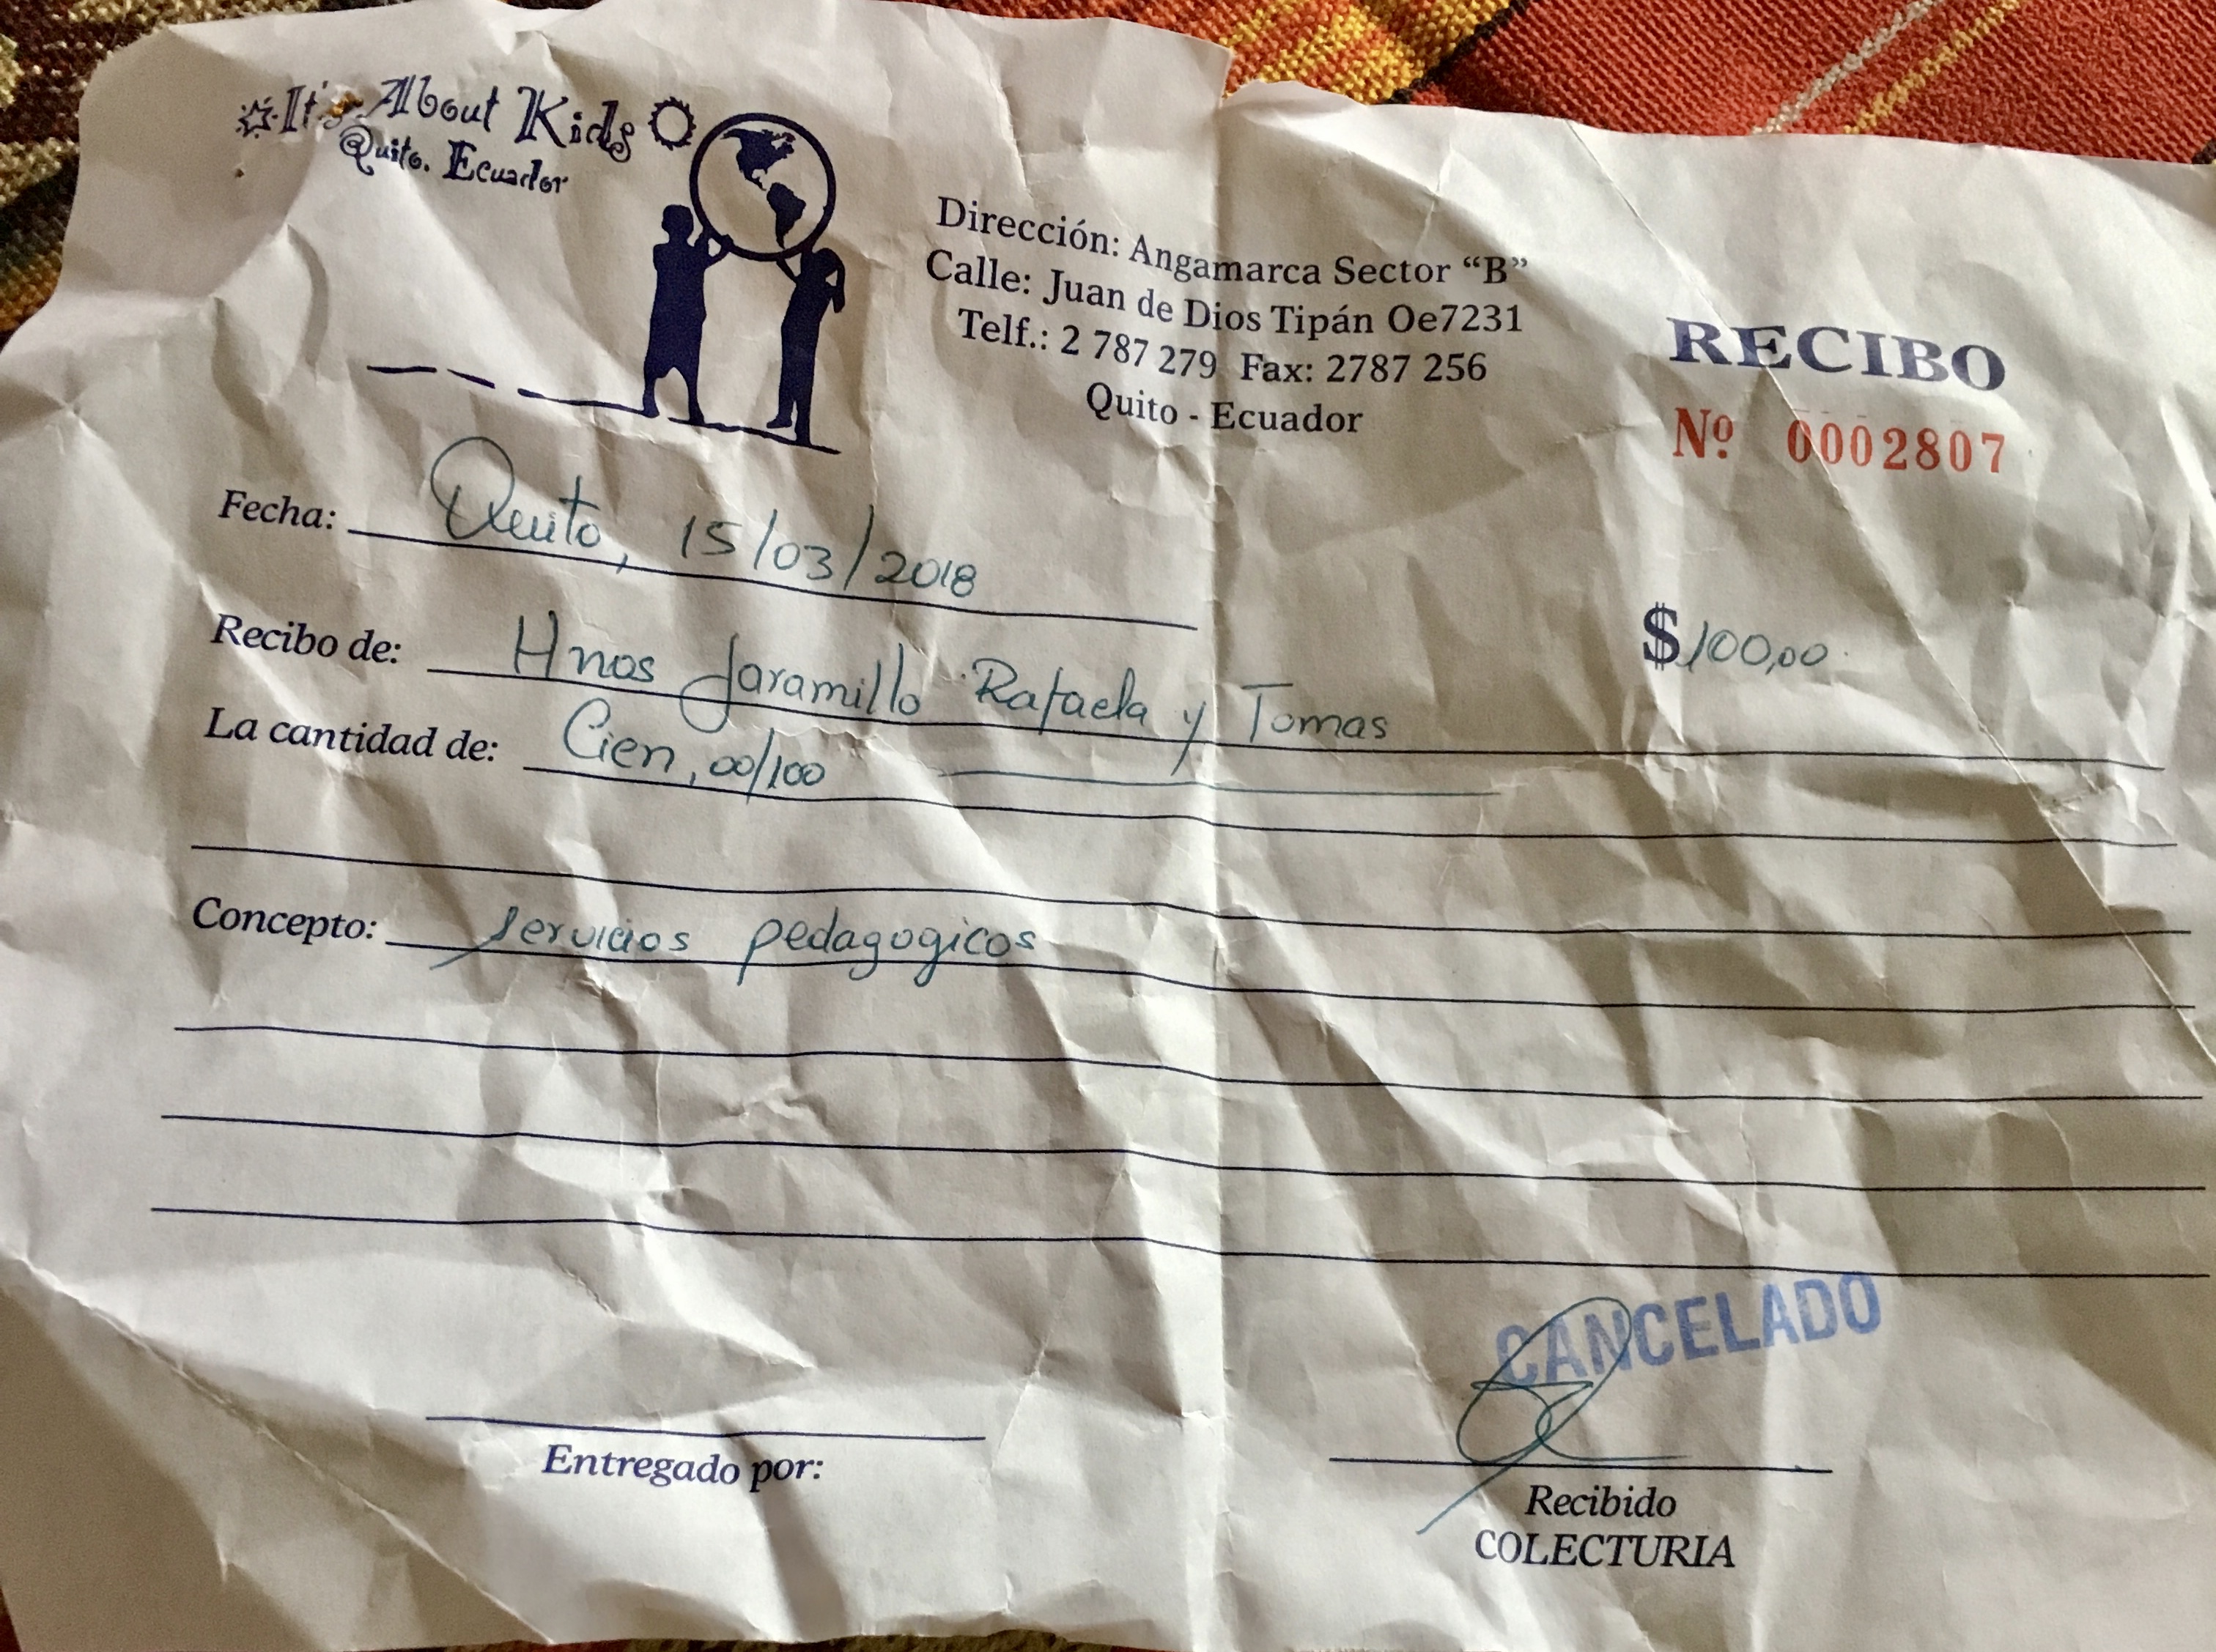 It's About Kids
Quito. Ecuador
Dirección: Angamarca Sector “B”
Calle: Juan de Dios Tipán Oe7231
Telf.: 2 787 279 Fax: 2787 256
Quito - Ecuador
RECIBO
Nº 0002807
Fecha: Quito, 15/03/2018
$ 100,00
Recibo de: Hnos Jaramillo Rafaela y Tomas
La cantidad de: Cien, 00/100
Concepto: servicios pedagogicos
CANCELADO
Entregado por:
Recibido
COLECTURIA